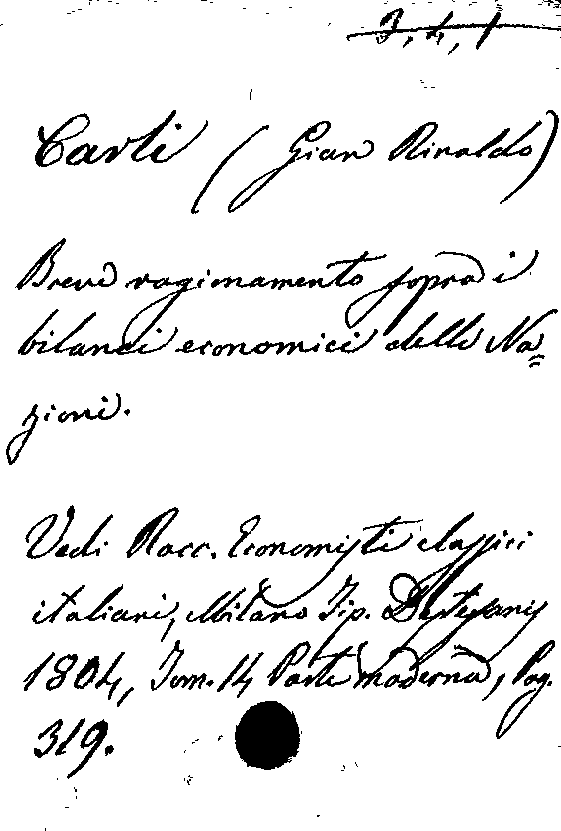 3, 4, 1
Carli (Gian Rinaldo)
Breve ragionamento sopra i
bilanci economici delle Na=
zioni.
Vedi Racc. Economisti classici
italiani, Milano Tip. Destefanis
1804, Tom. 14 Parte moderna, Pag.
319.